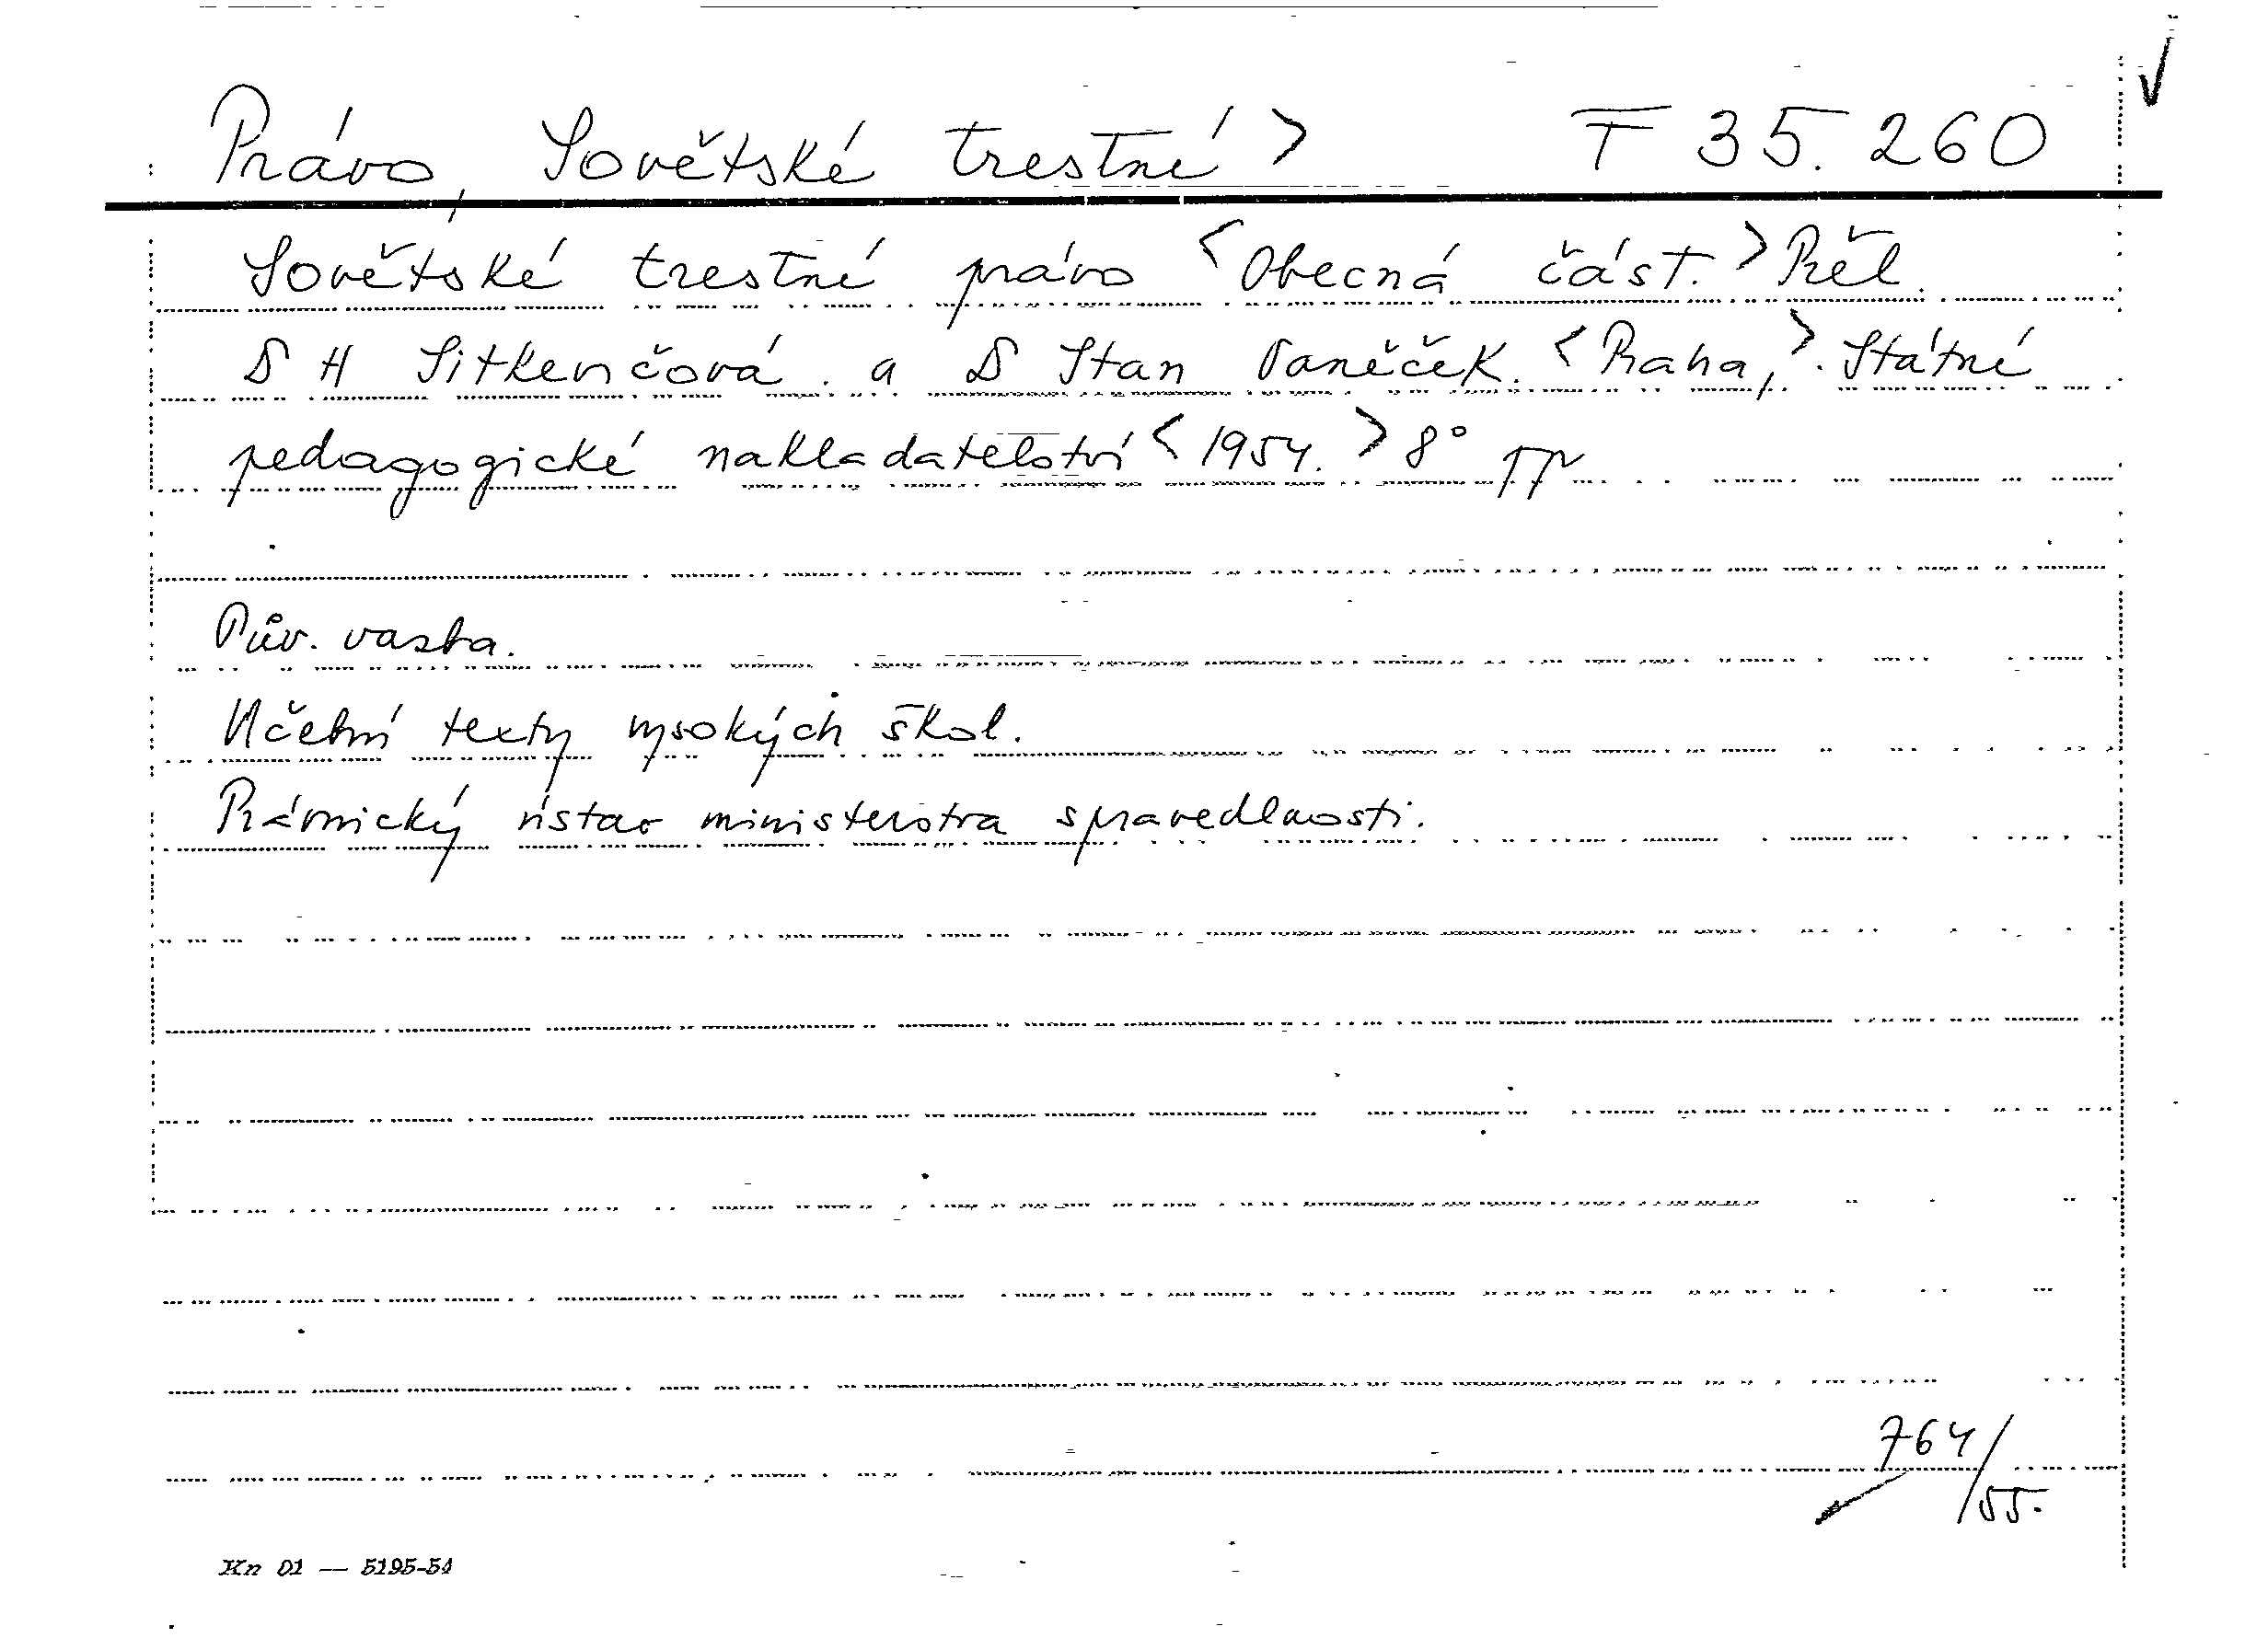 Právo, Sovětské trestné > T 35.260
Sovětské trestné právo <Obecná část.> Přel.
D H Sitkenčová a D Stan Vaněček. <Praha,> Státné
pedagogické nakladatelství <1954.> 8°
Pův. vazba.
Učební texty vysokých škol.
Právnický ústav ministerstva spravedlnosti.
764/55.
Kn 01 — 5195-54